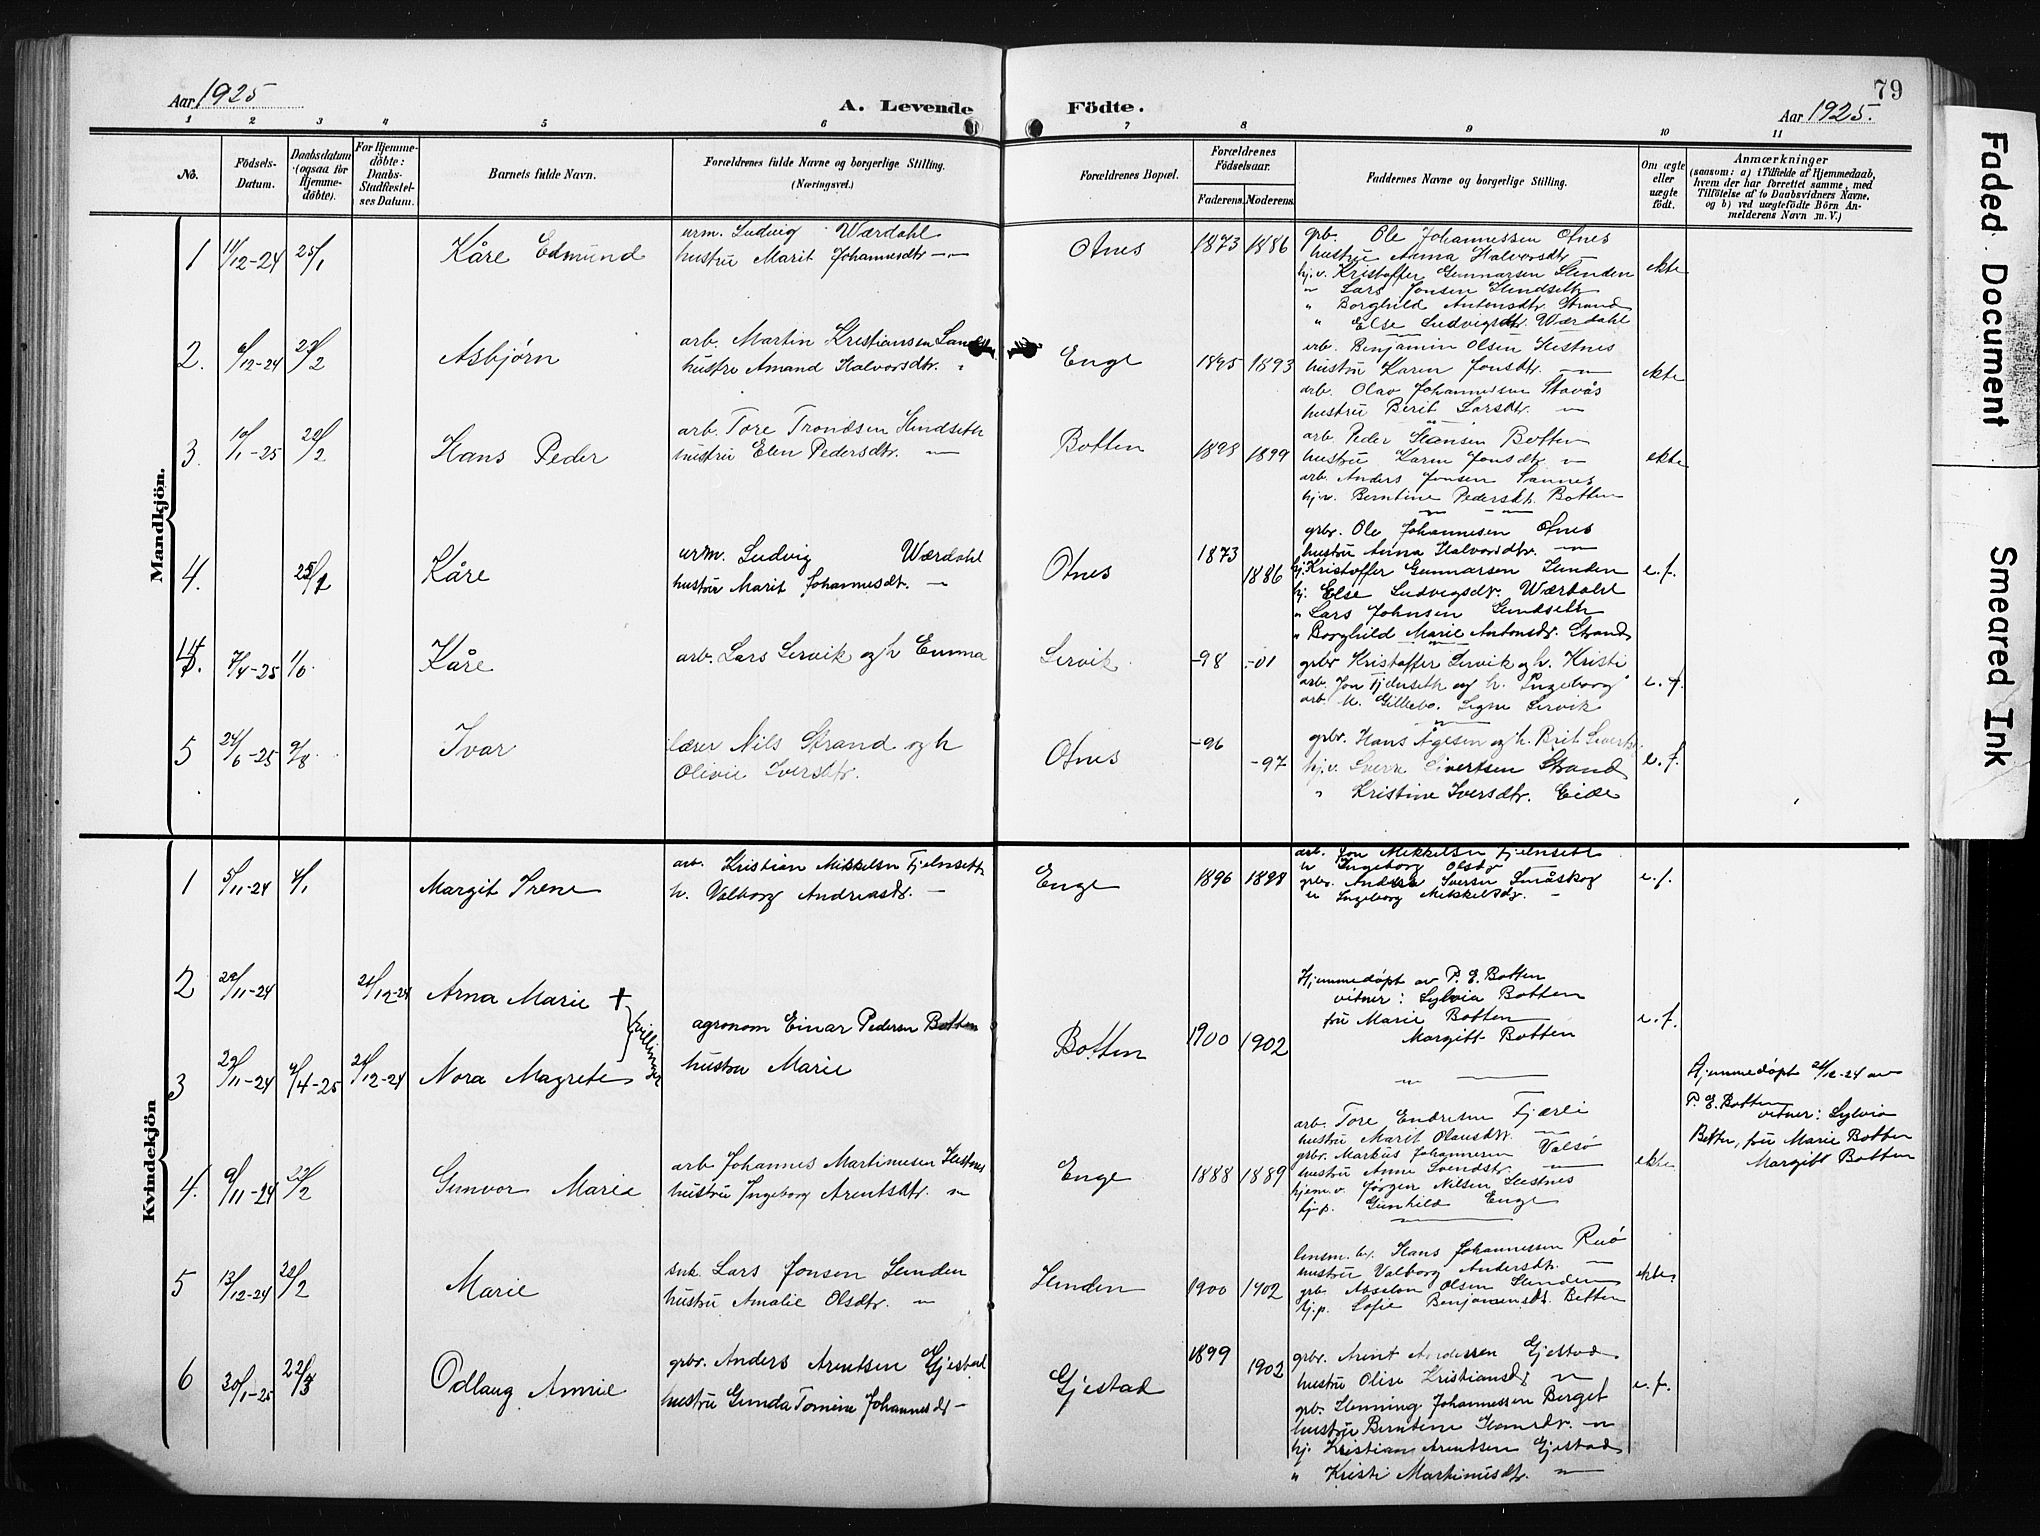 79
Aar 1925 A. Levende Födte. Aar 1925.
1 2 3 4 5 6 7 8 9 10 11
No. Födsels-Datum. Daabsdatum (ogsaa for Hjemmedöbte). For Hjemmedöbte: Daabs-Stadfæstelses Datum. Barnets fulde Navn. Forældrenes fulde Navne og borgerlige Stilling. (Næringsvei.) Forældrenes Bopæl. Forældrenes Födselsaar. Faderens. Moderens. Faddernes Navne og borgerlige Stilling. Om ægte eller uægte födt. Anmærkninger (saasom: a) i Tilfælde af Hjemmedaab, hvem der har forrettet samme, med Tilföielse af to Daabsvidners Navne. og b) ved uægtefödte Börn Anmelderens Navn m. V.)
Mandkjön.
1 11/12-24 25/1 Kåre Edmund urm. Ludvig Wærdahl
hustru Marit Johannesdtr. -"- Otnes 1873 1886 grb. Ole Johannessen Otnes
hustru Anna Halvorsdtr. -
hj.v. Kristoffer Gunnarsen Henden
" Lars Jonsen Hendseth
" Borghild Antonsdtr. Strand
" Else Ludvigsdtr. Wærdahl ekte
2. 6/12-24 22/2 Asbjørn arb. Martin Kristiansen
hustru Amand Halvorsdtr. " Enge 1895 1893 arb. Benjamin Olsen Hestnes
hustru Karen Jonsdtr. -"-
arb. Olav Johannessen Stavås
hustru Berit Larsdtr. -"- ekte
3. 10/1-25 22/2 Hans Peder arb. Tore Trondsen Hendseth
hustru Elen Pedersdtr. -"- Botten 1898 1899 arb. Peder Hansen Botten
hustru Karen Jonsdtr. -"-
arb. Anders Jonsen Vannes
hj.v. Berntine Pedersdtr. Botten ekte
4. 25/1 Kåre urm. Ludvig Wærdahl
hustru Marit Johannesdtr. - Otnes 1873 1886 grbr. Ole Johannesen Otnes
hustru Anna Halvorsdtr. -"-
hj. Kristoffer Gunnarsen Henden
hj. Else Ludvigsdtr. Wærdahl
" Lars Johnsen Hendseth
" Borghild Marie Antonsdtr. Strand e.f.
4. 7/4-25 1/6. Kåre arb. Lars Lervik og h Emma Lervik -98 -01 grbr Kristoffer Lervik og h. Kristi
arb. Jon Fjelnseth og h. Ingeborg
arb. M. Gillebo. Signe Lervik e.f.
5 24/6-25 9/8. Ivar lærer Nils Strand og h
Olivie Iversdtr. Otnes -96 -97 grbr. Hans Ågesen og h. Brit Sivertsdtr.
hj.v. Sverre Sivertsen Strand
" Kristine Iversdtr. Eide e.f.
Kvindekjön
1 5/11-24 4/1 Margit Irene arb. Kristian Mikkelsen Fjelnseth
h. Valborg Andreasdtr. - Enge 1896 1898 arb. Jon Mikkelsen Fjelnseth
h Ingeborg Olsdtr
grbr. Anders Iversen Småskog
h Ingeborg Mikkelsdtr. - e.f.
2 29/11-24 26/12-24 Arna Marie +
3 29/11-24 9/4-25 26/12-24 Nora Magrete } tvillinger agronom Einar Pedersen Botten
hustru Marie Botten 1900 1902 Hjemmedøpt av P. E. Botten
vitner: Sylvia Botten
fru Marie Botten
Margitt Botten e.f.
-"- Hjemmedøpt 26/12-24 av
P. E. Botten
vitner: Sylvia
Botten, fru Marie Botten
Margitt Botten
4. 9/11-24 22/2 Gunvor Marie arb. Johannes Martinusen Hestnes
hustru Ingeborg Arentsdtr. -"- Enge 1888 1889 arb. Tore Endresen Fjærli
hustru Marit Olausdtr. -
grbr. Markus Johannesen Valsø
hustru Anne Svendsdtr. -
hjem.v. Jørgen Nilsen Hestnes
hj.p. Gunhild Enge ekte
5 13/12-24 22/2 Marie snk. Lars Jonsen Henden
hustru Amalie Olsdtr. -"- Henden 1900 1902 lensm. b. Hans Johannessen Risø
hustru Valborg Andersdtr. -
grb. Absalon Olsen Henden
hj.p. Sofie Benjaminsdtr. Botten ekte
6 30/1-25 22/3 Odlaug Annie grbr. Anders Arentsen Gjestad
hustru Gunda Tomine Johannesdtr - Gjestad 1899 1902 grbr. Arent Andersen Gjestad
hustru Olise Kristiansdtr -"-
grb. Henning Johannessen Berget
hustru Berntine Hansdtr. -"-
hj. Kristian Arentsen Gjestad
" Kristi Martinusdtr. -"- e.f.
Faded Document
Smeared Ink